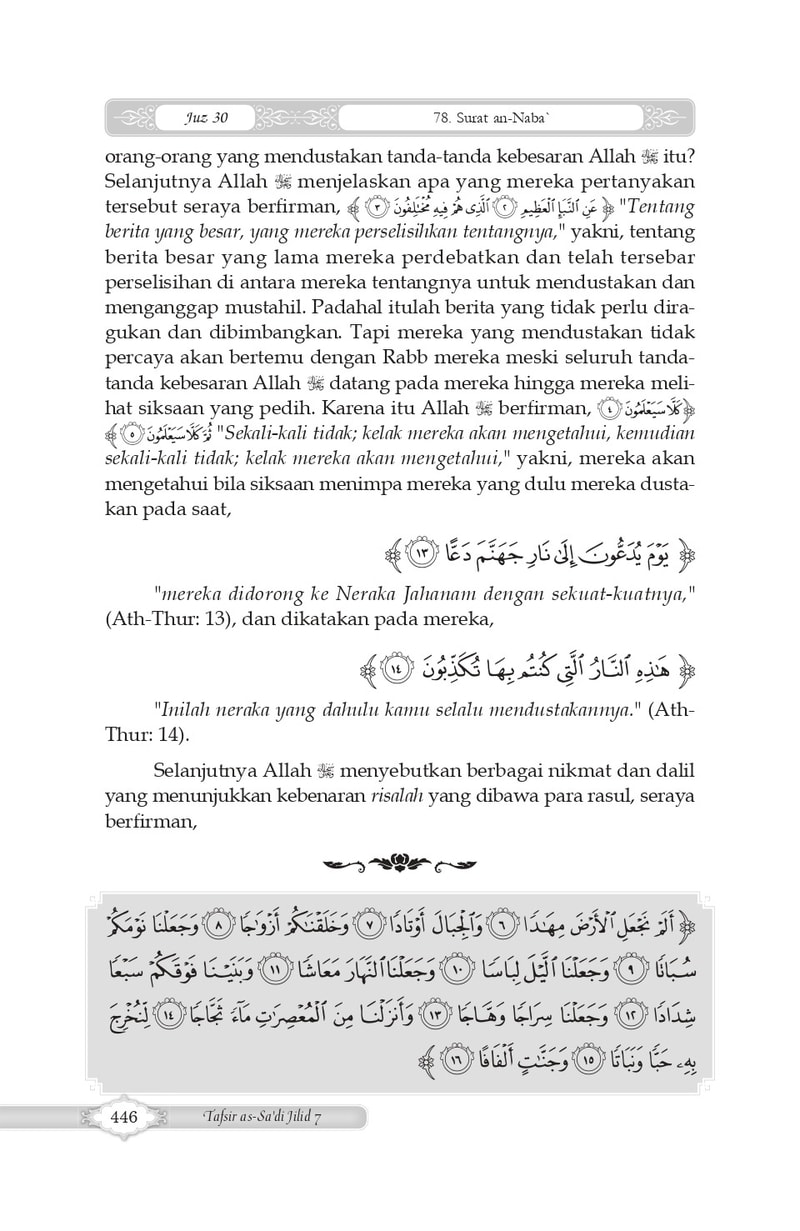 Juz 30
78. Surat an-Naba`
orang-orang yang mendustakan tanda-tanda kebesaran Allah ﷻ itu?
Selanjutnya Allah ﷻ menjelaskan apa yang mereka pertanyakan
tersebut seraya berfirman, ﴿ عَنِ ٱلنَّبَإِ ٱلۡعَظِيمِ ٢ ٱلَّذِي هُمۡ فِيهِ مُخۡتَلِفُونَ ٣ ﴾ "Tentang
berita yang besar, yang mereka perselisihkan tentangnya," yakni, tentang
berita besar yang lama mereka perdebatkan dan telah tersebar
perselisihan di antara mereka tentangnya untuk mendustakan dan
menganggap mustahil. Padahal itulah berita yang tidak perlu dira-
gukan dan dibimbangkan. Tapi mereka yang mendustakan tidak
percaya akan bertemu dengan Rabb mereka meski seluruh tanda-
tanda kebesaran Allah ﷻ datang pada mereka hingga mereka meli-
hat siksaan yang pedih. Karena itu Allah ﷻ berfirman, ﴿ كَلَّا سَيَعۡلَمُونَ ٤
ثُمَّ كَلَّا سَيَعۡلَمُونَ ٥ ﴾ "Sekali-kali tidak; kelak mereka akan mengetahui, kemudian
sekali-kali tidak; kelak mereka akan mengetahui," yakni, mereka akan
mengetahui bila siksaan menimpa mereka yang dulu mereka dusta-
kan pada saat,
﴿ يَوۡمَ يُدَعُّونَ إِلَىٰ نَارِ جَهَنَّمَ دَعًّا ١٣ ﴾
"mereka didorong ke Neraka Jahanam dengan sekuat-kuatnya,"
(Ath-Thur: 13), dan dikatakan pada mereka,
﴿ هَٰذِهِ ٱلنَّارُ ٱلَّتِي كُنتُم بِهَا تُكَذِّبُونَ ١٤ ﴾
"Inilah neraka yang dahulu kamu selalu mendustakannya." (Ath-
Thur: 14).
Selanjutnya Allah ﷻ menyebutkan berbagai nikmat dan dalil
yang menunjukkan kebenaran risalah yang dibawa para rasul, seraya
berfirman,
﴿ أَلَمۡ نَجۡعَلِ ٱلۡأَرۡضَ مِهَٰدٗا ٦ وَٱلۡجِبَالَ أَوۡتَادٗا ٧ وَخَلَقۡنَٰكُمۡ أَزۡوَٰجٗا ٨ وَجَعَلۡنَا نَوۡمَكُمۡ
سُبَاتٗا ٩ وَجَعَلۡنَا ٱلَّيۡلَ لِبَاسٗا ١٠ وَجَعَلۡنَا ٱلنَّهَارَ مَعَاشٗا ١١ وَبَنَيۡنَا فَوۡقَكُمۡ سَبۡعٗا
شِدَادٗا ١٢ وَجَعَلۡنَا سِرَاجٗا وَهَّاجٗا ١٣ وَأَنزَلۡنَا مِنَ ٱلۡمُعۡصِرَٰتِ مَآءٗ ثَجَّاجٗا ١٤ لِّنُخۡرِجَ
بِهِۦ حَبّٗا وَنَبَاتٗا ١٥ وَجَنَّٰتٍ أَلۡفَافًا ١٦ ﴾
446
Tafsir as-Sa'di Jilid 7